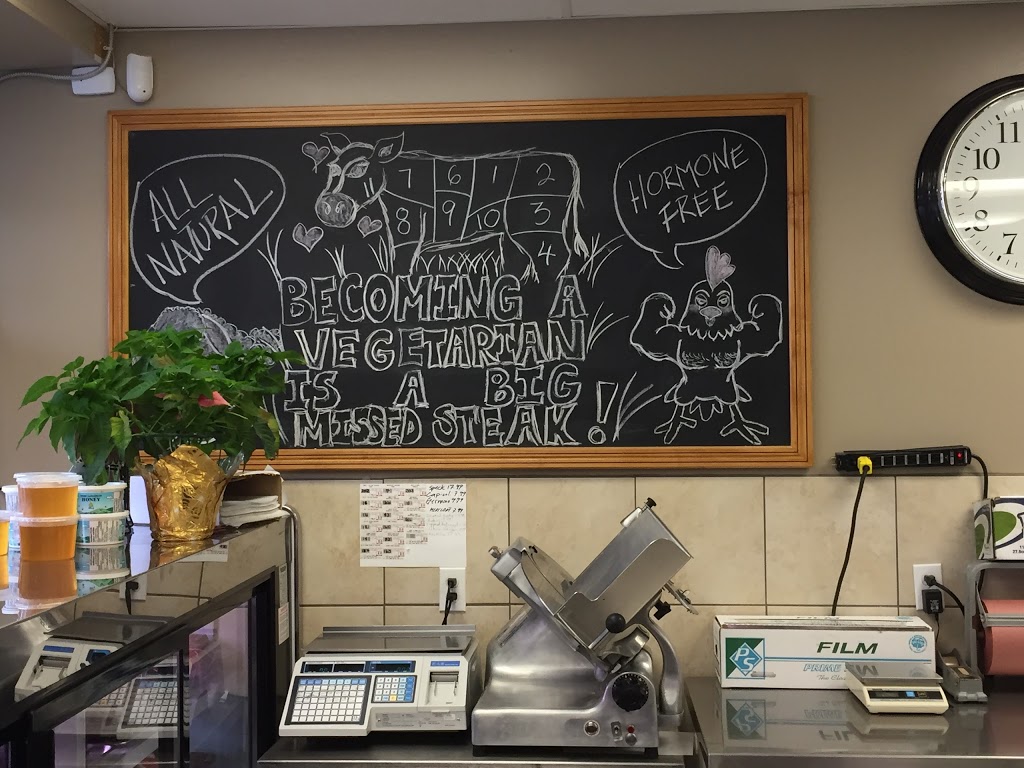 ALL
NATURAL
HORMONE
FREE
7 6 1 2
8 9 10 3
4
BECOMING A
VEGETARIAN
IS A BIG
MISSED STEAK!
11
10
9
8
7
HONEY
FILM
PRIME